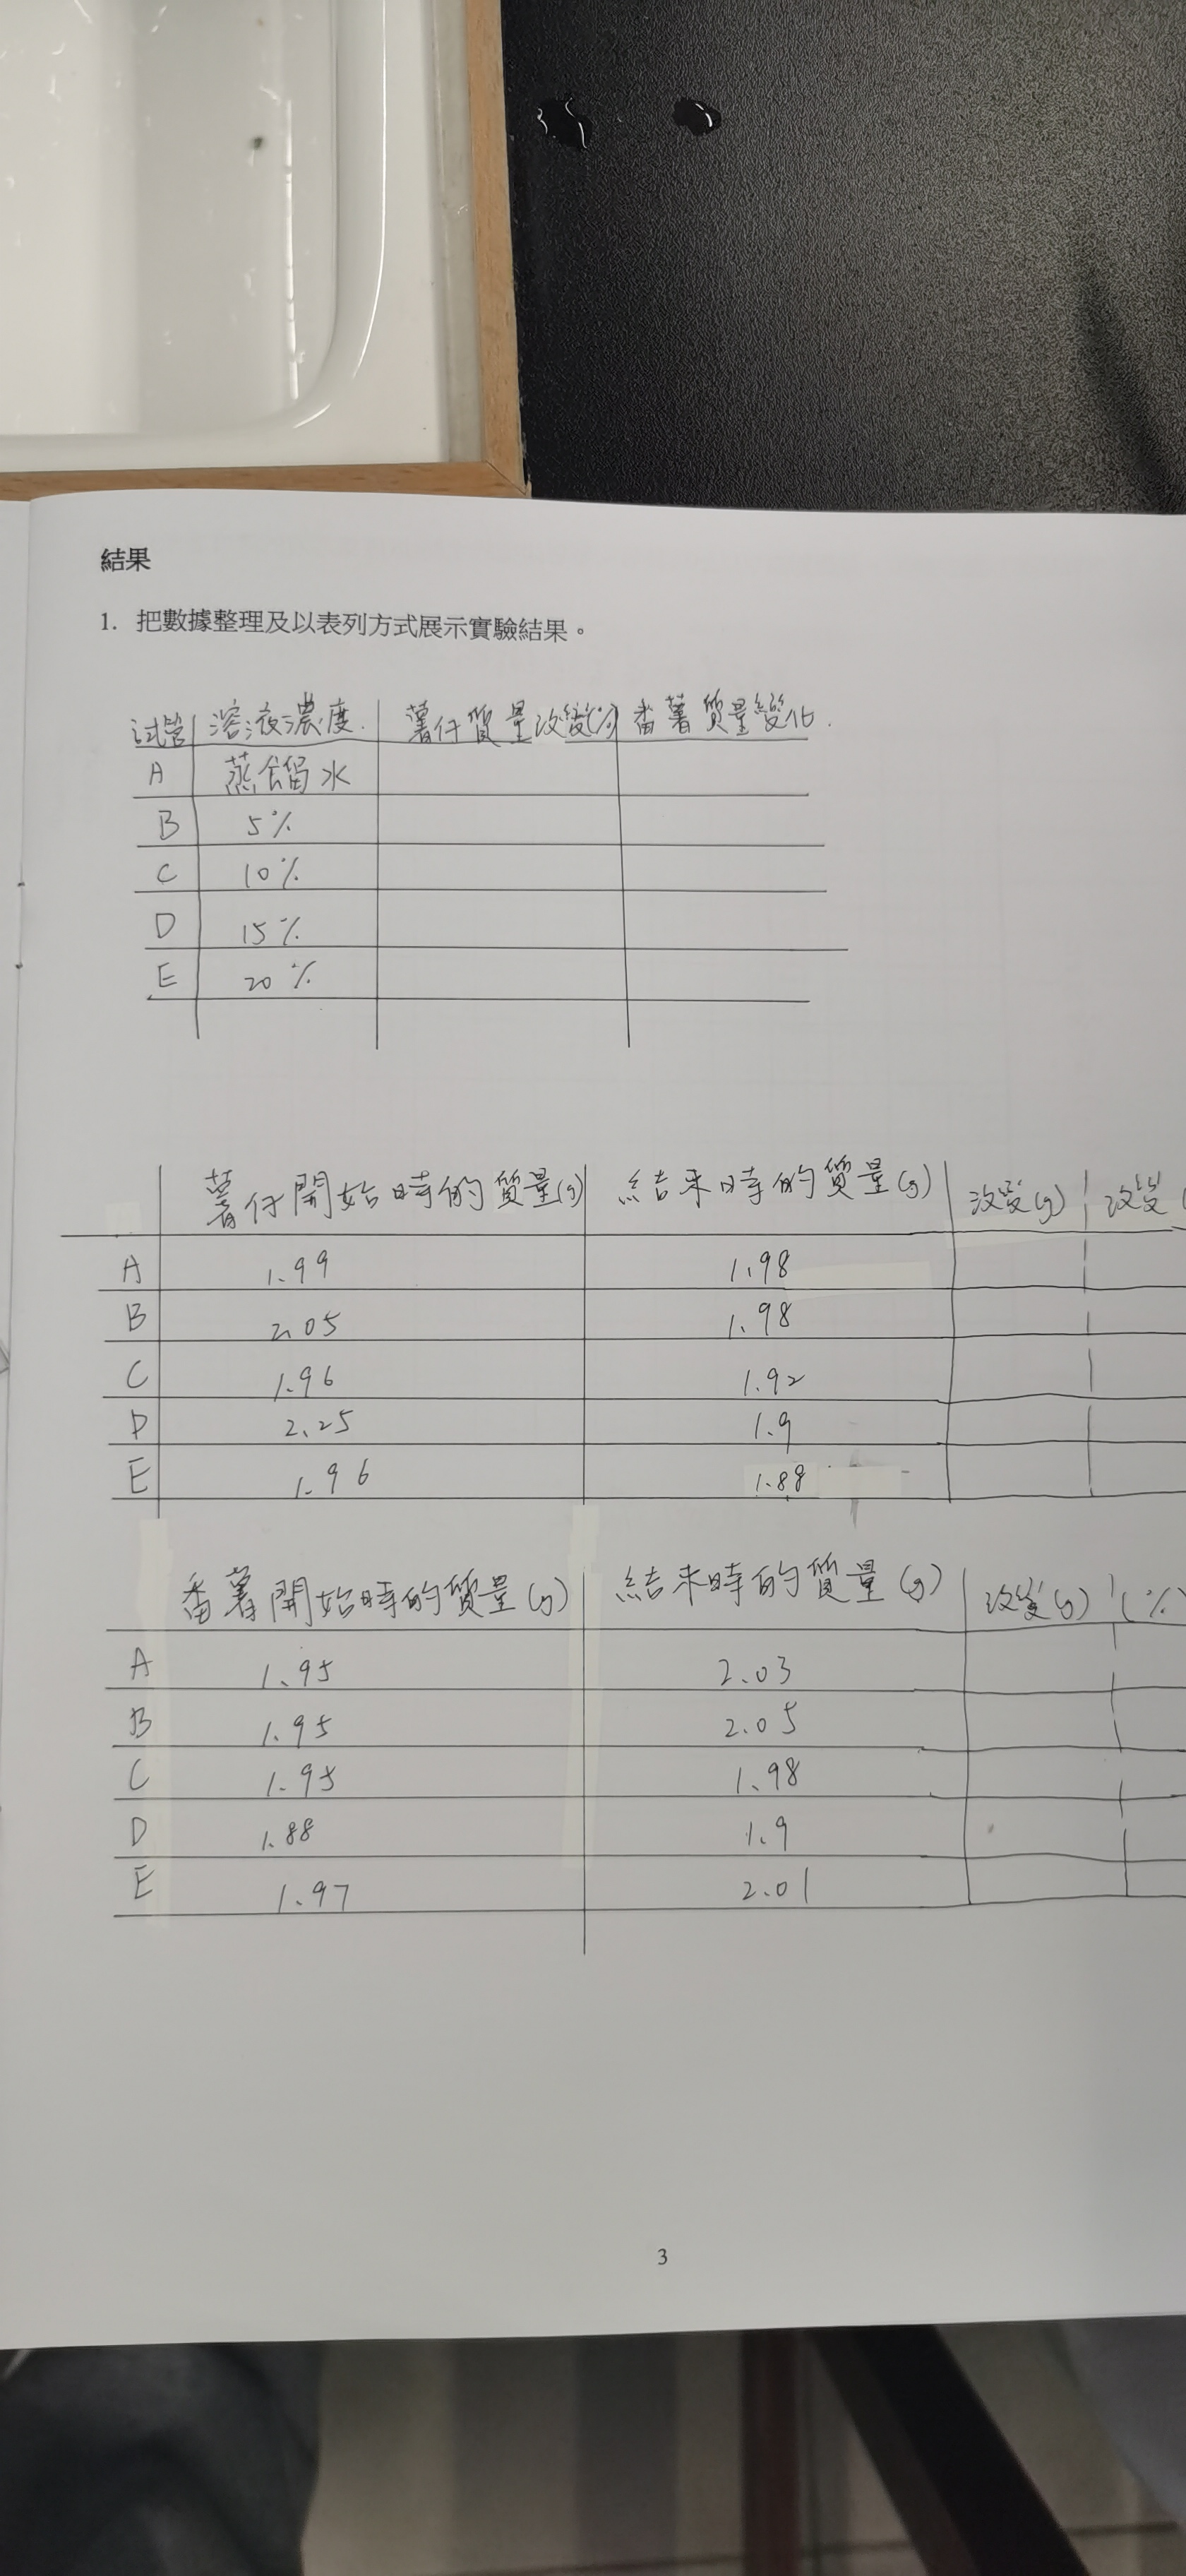 結果
1. 把數據整理及以表列方式展示實驗結果。
試管 溶液濃度. 薯仔質量改變(%) 番薯質量變化.
A 蒸餾水
B 5%
C 10%
D 15%
E 20%
薯仔開始時的質量(g) 結束時的質量(g) 改变(g) 改变(
A 1.99 1.98
B 2.05 1.98
C 1.96 1.92
D 2.25 1.9
E 1.96 1.88
番薯開始時的質量(g) 結束時的質量(g) 改变(g) (%)
A 1.95 2.03
B 1.95 2.05
C 1.95 1.98
D 1.88 1.9
E 1.97 2.01
3